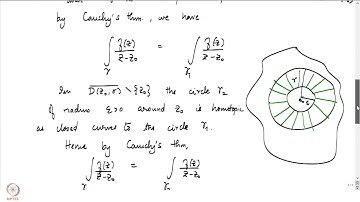 by Cauchy's thm., we have
∫_γ f(z)/(z-z₀) = ∫_γ₁ f(z)/(z-z₀)
In D(z₀,r) \ {z₀} the circle γ₂
of radius ε>0 around z₀ is homotopic
as closed curve to the circle γ₁.
Hence by Cauchy's thm,
∫_γ f(z)/(z-z₀) = ∫_γ₂ f(z)/(z-z₀)
γ
z₀ ε
NPTEL